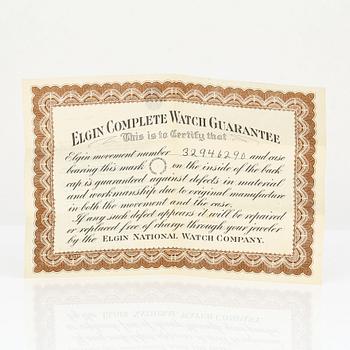 ELGIN COMPLETE WATCH GUARANTEE
This is to Certify that
Elgin movement number 32946290 and case
bearing this mark on the inside of the back
cap is guaranteed against defects in material
and workmanship due to original manufacture
in both the movement and the case.
If any such defect appears it will be repaired
or replaced free of charge through your jeweler
by the ELGIN NATIONAL WATCH COMPANY.